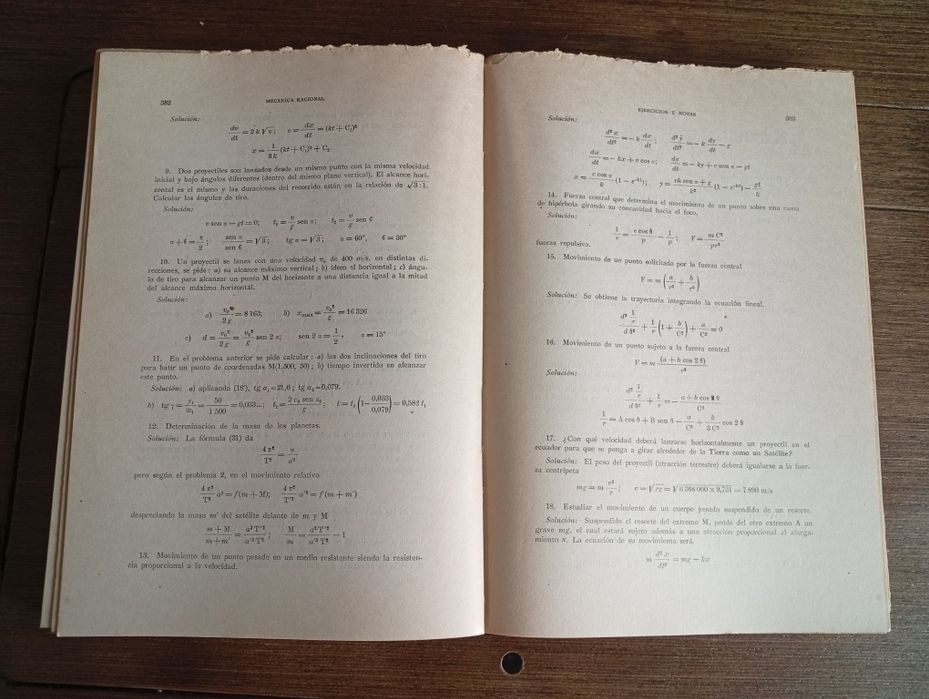 382
MECANICA RACIONAL
Solución:
dv/dt = 2 k √v; v = dx/dt = (kt + C₁)²
x = 1/3k (kt + C₁)³ + C₂
9. Dos proyectiles son lanzados desde un mismo punto con la misma velocidad
inicial y bajo ángulos diferentes (dentro del mismo plano vertical). El alcance hori-
zontal es el mismo y las duraciones del recorrido están en la relación de √3 : 1.
Calcular los ángulos de tiro.
Solución:
v sen α − gt = 0; t₁ = v/g sen α; t₂ = v/g sen ϐ
α + ϐ = π/2; sen α/sen ϐ = √3; tg α = √3; α = 60°, ϐ = 30°
10. Un proyectil se lanza con una velocidad v₀ de 400 m/s. en distintas di-
recciones, se pide: a) su alcance máximo vertical; b) ídem el horizontal; c) ángu-
lo de tiro para alcanzar un punto M del horizonte a una distancia igual a la mitad
del alcance máximo horizontal.
Solución:
a) v₀²/2g = 8 163; b) xmax = v₀²/g = 16 326
c) d = v₀²/2g = v₀²/g sen 2 α; sen 2 α = 1/2, α = 15°
11. En el problema anterior se pide calcular: a) las dos inclinaciones del tiro
para batir un punto de coordenadas M(1.500, 50); b) tiempo invertido en alcanzar
este punto.
Solución: a) aplicando (18'), tg α₁ = 21,6; tg α₂ = 0,079.
b) tg γ = y₁/x₁ = 50/1 500 = 0,033...; t₁ = 2 v₀ sen α₂/g; t = t₁ (1 − 0,033/0,079) = 0,582 t₁
12. Determinación de la masa de los planetas.
Solución: La fórmula (31) da
4 π²/T² = μ/a³
pero según el problema 2, en el movimiento relativo
4 π²/T² a³ = f(m + M); 4 π²/T'² a'³ = f(m + m')
despreciando la masa m' del satélite delante de m y M
m + M/m + m' = a³ T'²/a'³ T²; M/m = a³ T'²/a'³ T² − 1
13. Movimiento de un punto pesado en un medio resistente siendo la resisten-
cia proporcional a la velocidad.
EJERCICIOS Y NOTAS
383
Solución:
d² x/dt² = − k dx/dt; d² y/dt² = − k dy/dt − g
dx/dt = − kx + v cos α; dy/dt = − ky + v sen α − gt
x = v cos α/k (1 − e⁻ᵏᵗ); y = vk sen α + g/k² (1 − e⁻ᵏᵗ) − gt/k
14. Fuerza central que determina el movimiento de un punto sobre una rama
de hipérbola girando su concavidad hacia el foco.
Solución:
1/r = e cos θ/p − 1/p; F = m C²/pr²
fuerza repulsiva.
15. Movimiento de un punto solicitado por la fuerza central
F = m (a/r² + b/r³)
Solución: Se obtiene la trayectoria integrando la ecuación lineal.
d² 1/r/d θ² + 1/r (1 + b/C²) + a/C² = 0
16. Movimiento de un punto sujeto a la fuerza central
F = m (a + b cos 2 θ)/r²
Solución:
d² 1/r/d θ² + 1/r = − a + b cos 2 θ/C²
1/r = A cos θ + B sen θ − a/C² + b/3 C² cos 2 θ
17. ¿Con qué velocidad deberá lanzarse horizontalmente un proyectil en el
ecuador para que se ponga a girar alrededor de la Tierra como un Satélite?
Solución: El peso del proyectil (atracción terrestre) deberá igualarse a la fuer-
za centrípeta
mg = m v²/r; v = √rg = √6 398 000 × 9,731 = 7 890 m/s
18. Estudiar el movimiento de un cuerpo pesado suspendido de un resorte.
Solución: Suspendido el resorte del extremo M, pende del otro extremo A un
grave mg, el cual estará sujeto además a una atracción proporcional al alarga-
miento x. La ecuación de su movimiento será
m d² x/dt² = mg − kx